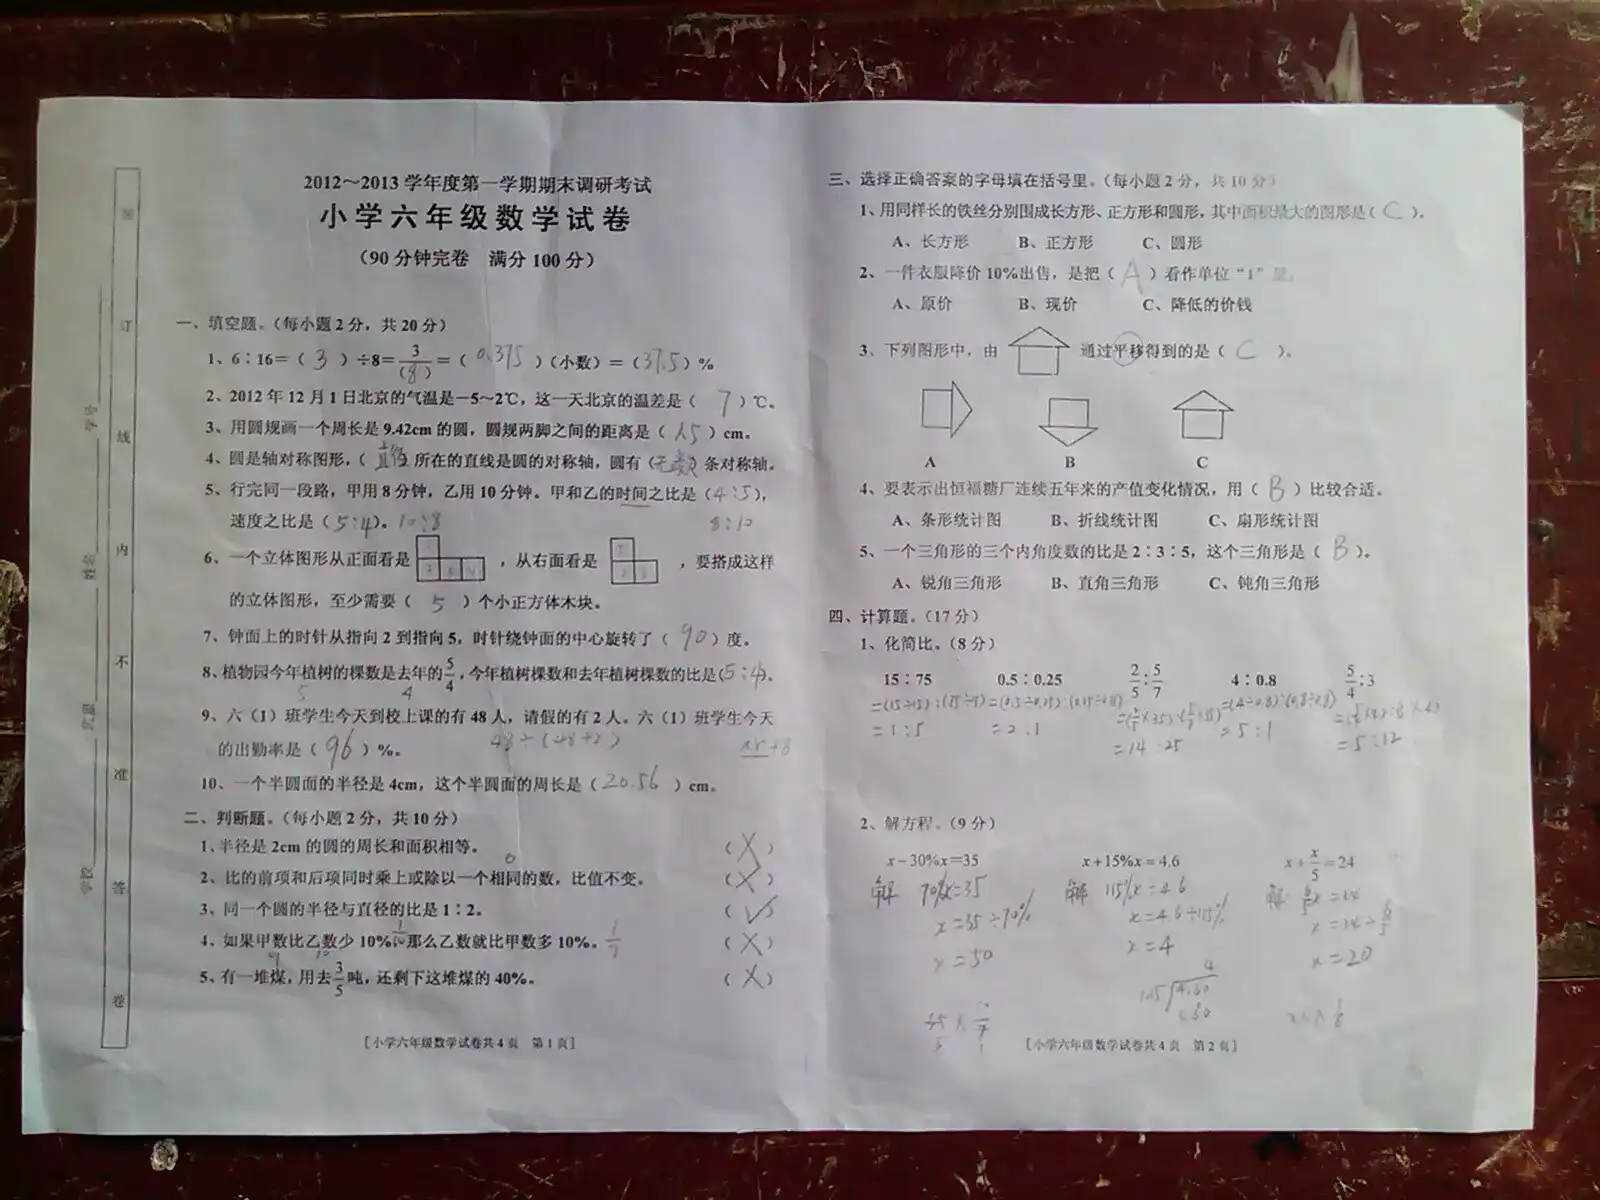 装
订
线
内
不
准
答
卷
学校
姓名
学号
2012～2013 学年度第一学期期末调研考试
小学六年级数学试卷
(90 分钟完卷 满分 100 分)
一、填空题。(每小题 2 分，共 20 分)
1、6∶16＝( 3 )÷8＝3/(8)＝( 0.375 )(小数)＝(37.5)%
2、2012 年 12 月 1 日北京的气温是－5～2℃，这一天北京的温差是( 7 )℃。
3、用圆规画一个周长是 9.42cm 的圆，圆规两脚之间的距离是( 1.5 )cm。
4、圆是轴对称图形，( 直径 所在的直线是圆的对称轴，圆有(无数)条对称轴。
5、行完同一段路，甲用 8 分钟，乙用 10 分钟。甲和乙的时间之比是(4∶5)，
速度之比是(5∶4)。10∶8 8∶10
6、一个立体图形从正面看是 ，从右面看是 ，要搭成这样
的立体图形，至少需要( 5 )个小正方体木块。
7、钟面上的时针从指向 2 到指向 5，时针绕钟面的中心旋转了( 90 )度。
8、植物园今年植树的棵数是去年的5/4，今年植树棵数和去年植树棵数的比是(5∶4)。
5 4
9、六（1）班学生今天到校上课的有 48 人，请假的有 2 人。六（1）班学生今天
的出勤率是( 96 )%。 48÷(48+2)
10、一个半圆面的半径是 4cm，这个半圆面的周长是( 20.56 )cm。
二、判断题。(每小题 2 分，共 10 分)
1、半径是 2cm 的圆的周长和面积相等。 ( X )
0
2、比的前项和后项同时乘上或除以一个相同的数，比值不变。 ( X )
3、同一个圆的半径与直径的比是 1∶2。 ( √ )
4、如果甲数比乙数少 10%，那么乙数就比甲数多 10%。 ( X )
5、有一堆煤，用去3/5吨，还剩下这堆煤的 40%。 ( X )
[小学六年级数学试卷共 4 页 第 1 页]
三、选择正确答案的字母填在括号里。(每小题 2 分，共 10 分)
1、用同样长的铁丝分别围成长方形、正方形和圆形，其中面积最大的图形是( C )。
A、长方形 B、正方形 C、圆形
2、一件衣服降价 10%出售，是把( A )看作单位“1”量。
A、原价 B、现价 C、降低的价钱
3、下列图形中，由 通过平移得到的是( C )。
A B C
4、要表示出恒福糖厂连续五年来的产值变化情况，用( B )比较合适。
A、条形统计图 B、折线统计图 C、扇形统计图
5、一个三角形的三个内角度数的比是 2∶3∶5，这个三角形是( B )。
A、锐角三角形 B、直角三角形 C、钝角三角形
四、计算题。(17 分)
1、化简比。(8 分)
15∶75 0.5∶0.25 2/5∶5/7 4∶0.8 5/4∶3
=(15÷15)∶(75÷15) =(0.5÷0.25)∶(0.25÷0.25) =(2/5×35)∶(5/7×35) =(4÷0.8)∶(0.8÷0.8) =(5/4×4)∶(3×4)
=1∶5 =2∶1 =14∶25 =5∶1 =5∶12
2、解方程。(9 分)
x－30%x＝35 x＋15%x＝4.6 x＋x/5＝24
解 70%x=35 解 115%x=4.6 解 6/5x=24
x=35÷70% x=4.6÷115% x=24÷6/5
x=50 x=4 x=20
[小学六年级数学试卷共 4 页 第 2 页]